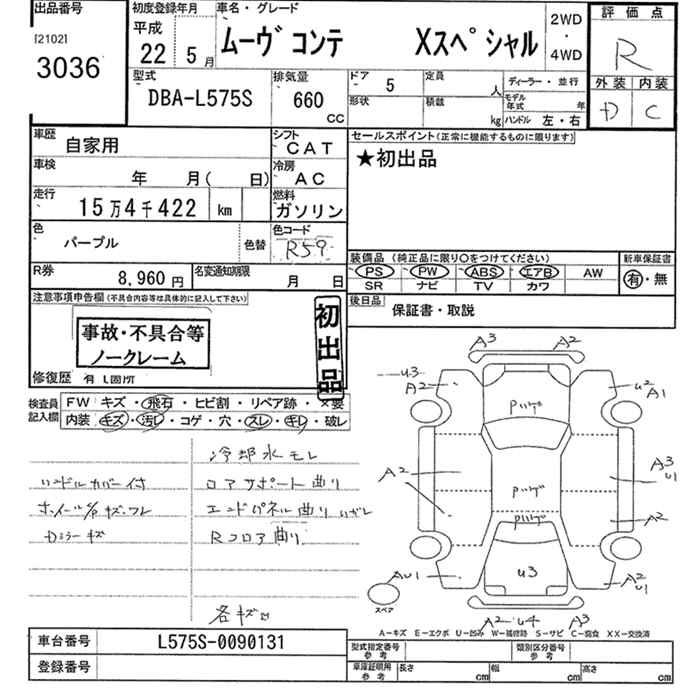 出品番号
[2102]
3036
初度登録年月
平成
22年 5月
車名・グレード
ムーヴ コンテ Xスペシャル
2WD
・
4WD
評価点
R
外装 内装
D C
型式
DBA-L575S
排気量
660
cc
ドア 5
定員 人
形状
積載 kg
ディーラー・並行
モデル年式 年
ハンドル 左・右
車歴 自家用
シフト CAT
車検 年 月( 日)
冷房 AC
走行 15万4千422 km
燃料 ガソリン
色 パープル
色替
色コード R59
R券 8,960円
名変通知期限 月 日
セールスポイント(正常に機能するものに限ります)
★初出品
装備品(純正品に限り○をつけてください)
PS PW ABS エアB AW
SR ナビ TV カワ
新車保証書
有・無
後日品 保証書・取説
注意事項申告欄(不具合内容等は具体的に記入して下さい)
事故・不具合等
ノークレーム
初出品
修復歴 有 1箇所
検査員記入欄
FW キズ・飛石・ヒビ割・リペア跡・×要
内装 キズ・汚レ・コゲ・穴・スレ・キレ・破レ
冷却水モレ
ハンドルカバー付
ロアサポート曲り
ホイールキャップキズ・ワレ
エンドパネル曲り
Dミラーキズ
Rフロア曲り
各キズ
A3 A2
U3
A2
U2
A1
パルプ
A2
パルプ
A3
U1
パルプ
A2
AU1
U3
A2
U1
スペア
A2 U4 A3
A-キズ E-エクボ U-凹み W-補修跡 S-サビ C-腐食 XX-交換済
車台番号 L575S-0090131
登録番号
型式指定番号
参考
類別区分番号
参考
車庫証明用
参考
長さ cm
幅 cm
高さ cm